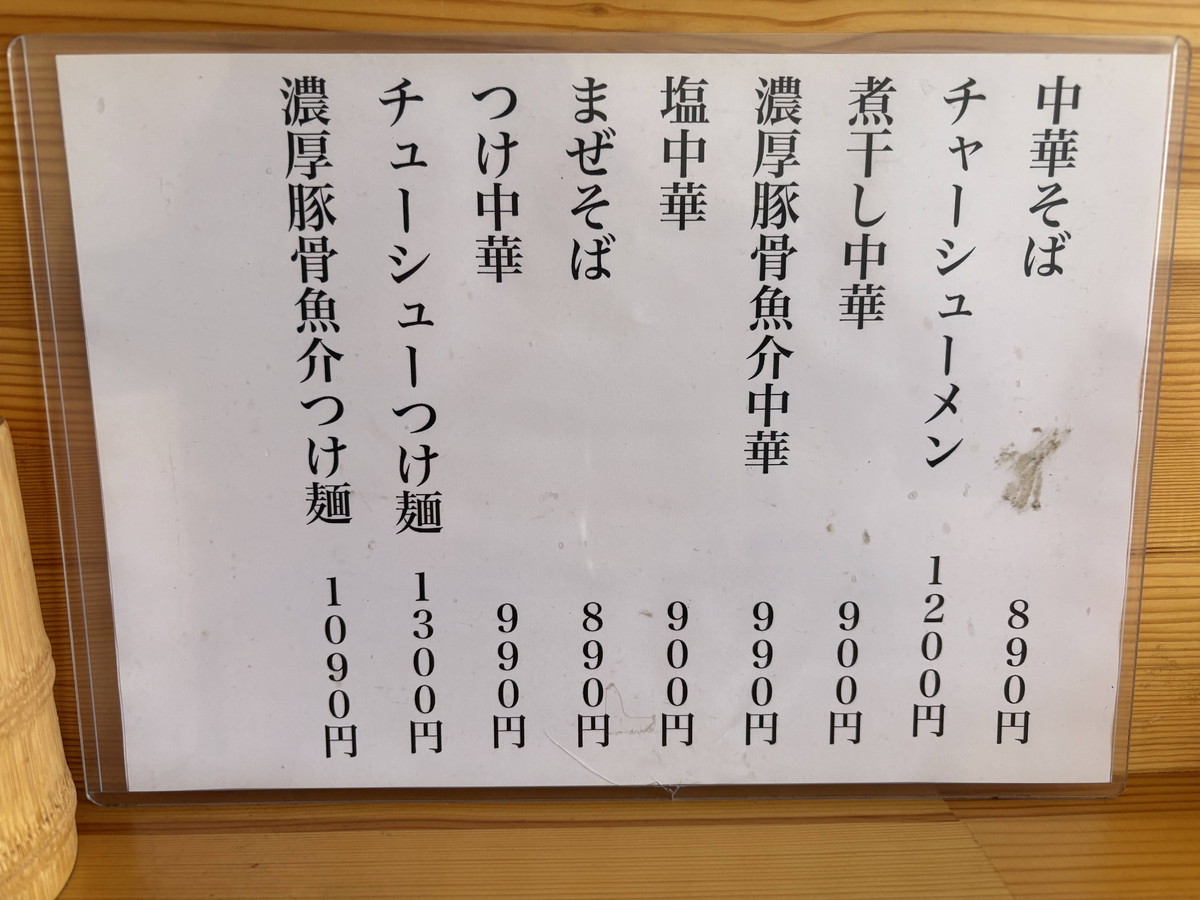 中華そば 890円
チャーシューメン 1200円
煮干し中華 900円
濃厚豚骨魚介中華 990円
塩中華 900円
まぜそば 890円
つけ中華 990円
チューシューつけ麺 1300円
濃厚豚骨魚介つけ麺 1090円